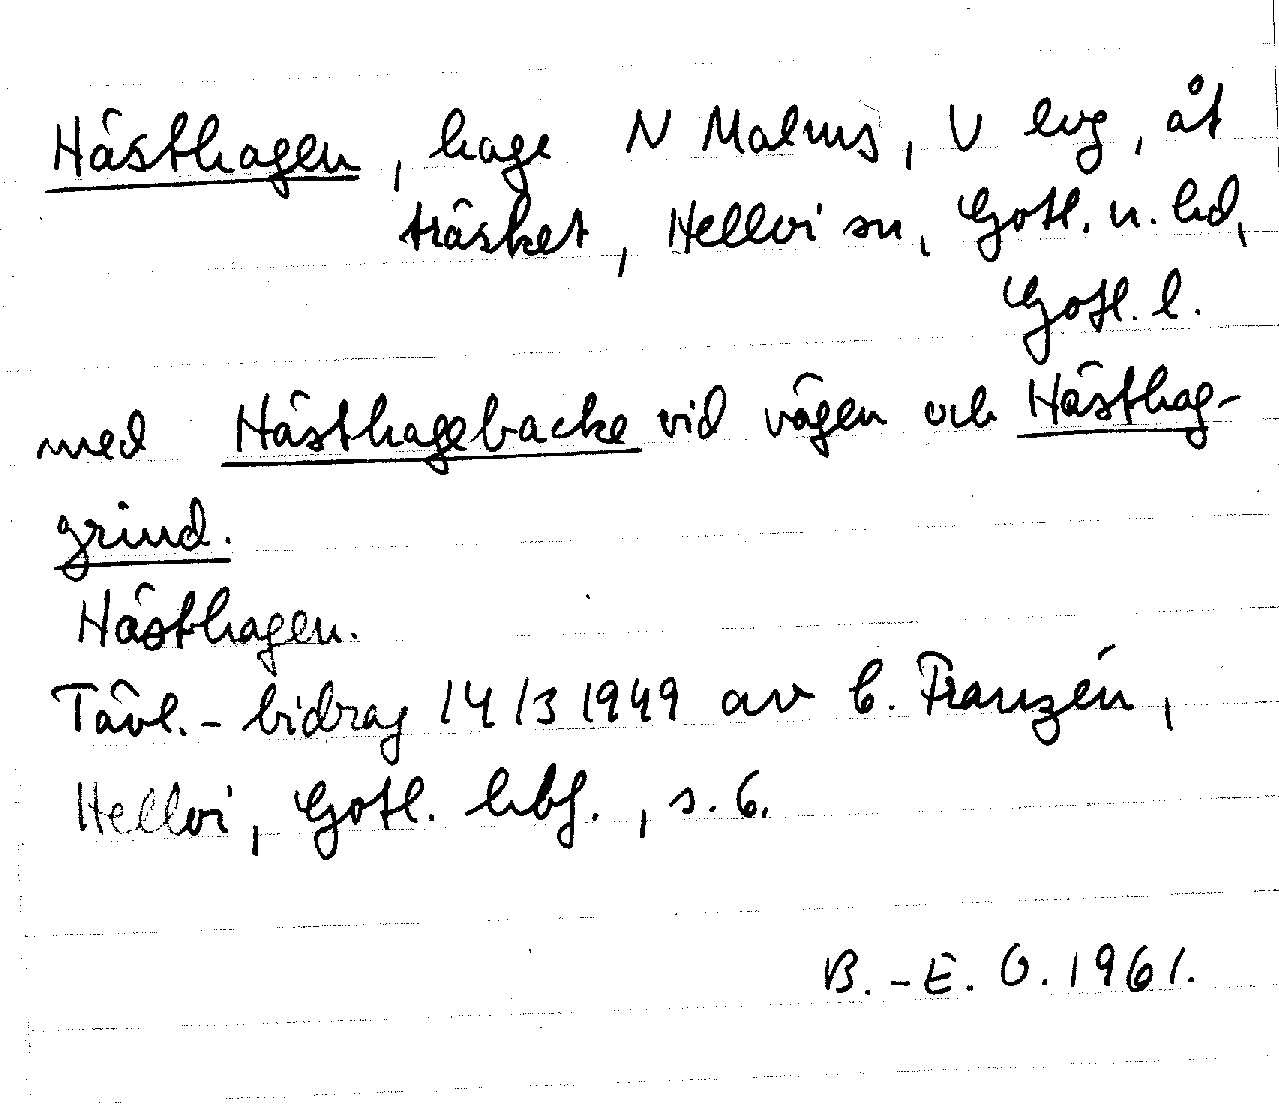 Hästhagen, hage N Malms, V lvg, åt
träsket, Hellvi sn, Gotl. n. hd,
Gotl. l.
med Hästhagebacke vid vägen och Hästhag-
grind.
Hästhagen.
Tävl.-bidrag 14/3 1949 av C. Franzén,
Hellvi, Gotl. hbf., s. 6.
B.-E. O. 1961.